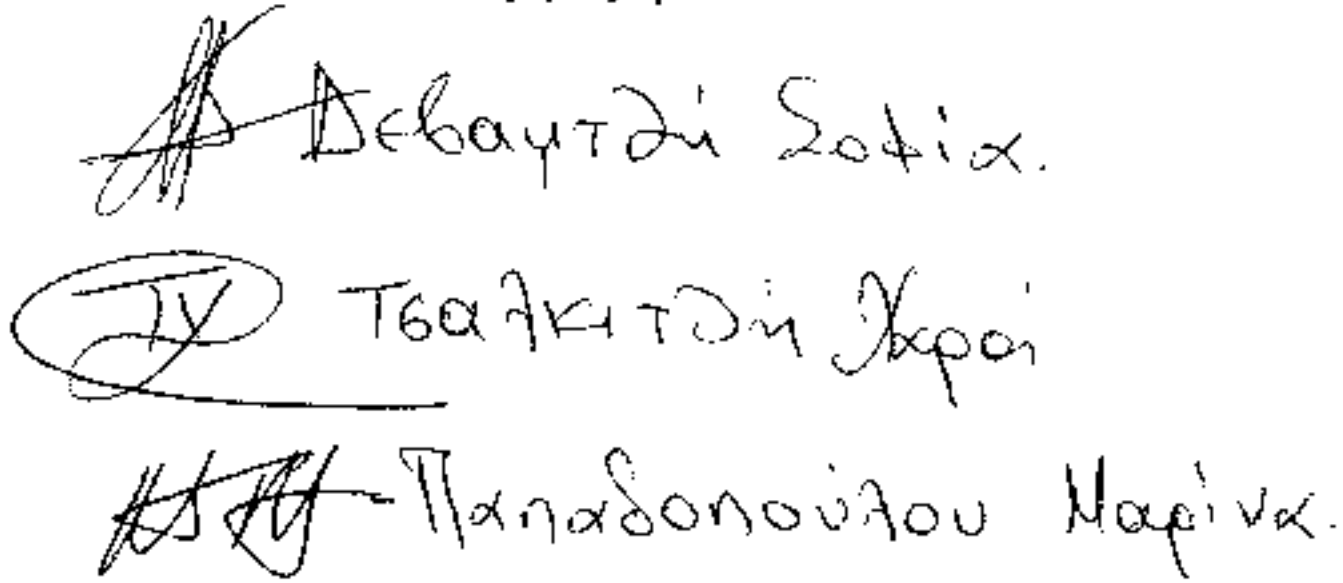 Δεβαμτζή Σοφία.
Τσαλκιτζή Χαρά
Παπαδοπούλου Μαρίνα.